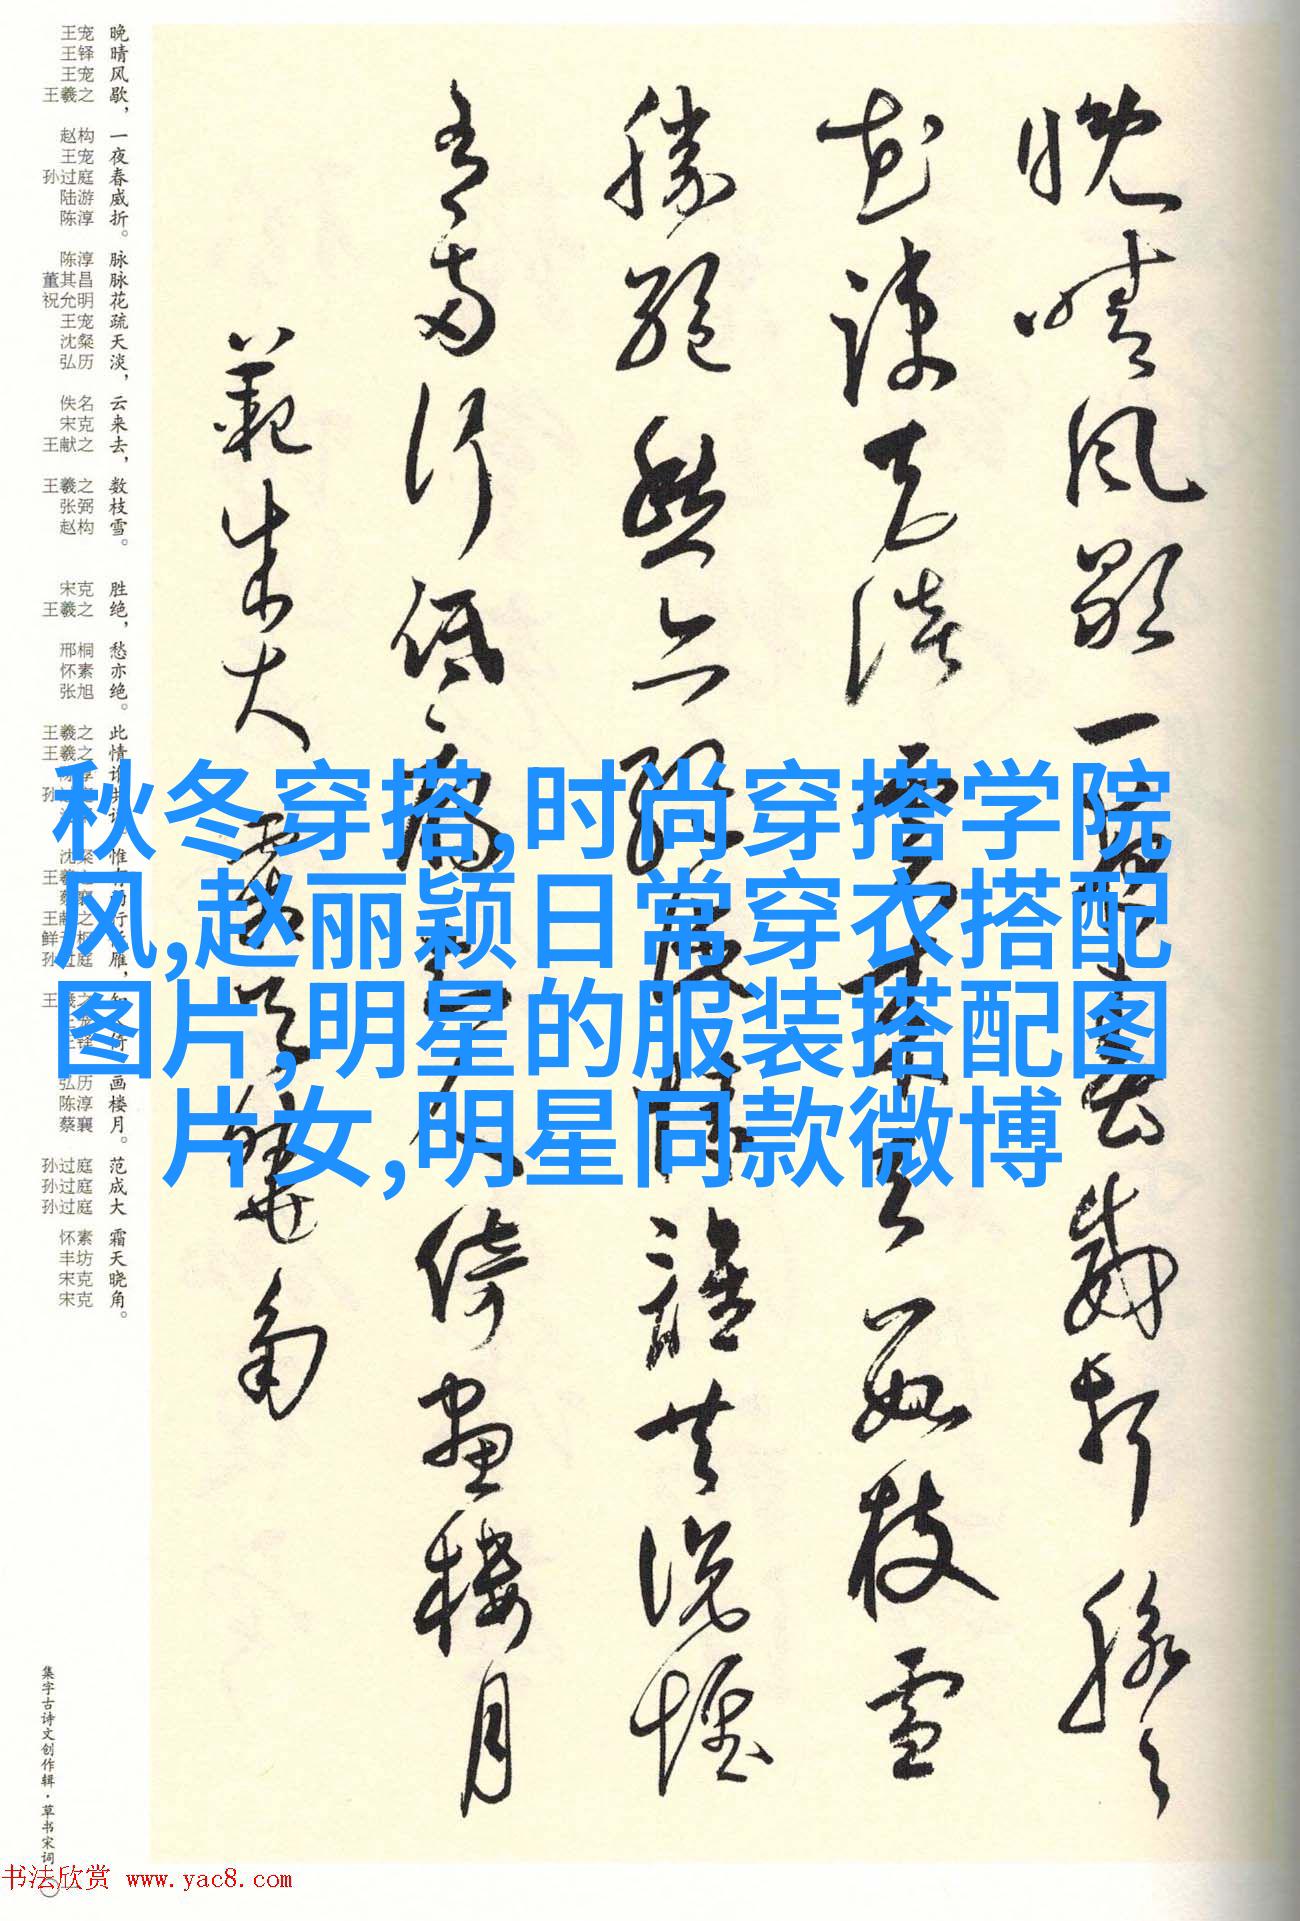 晚晴风歇，
一夜春威折。
脉脉花疏天淡，
云来去，
数枝雪。
胜绝，
愁亦绝。
此情谁共说。
惟有两行
雁，
倚
画楼月。
范成大
霜天晓角。
王宠
王铎
王宠
王羲之
赵构
王宠
孙过庭
陆游
陈淳
陈淳
董其昌
祝允明
王宠
沈粲
弘历
佚名
宋克
王献之
王羲之
张弼
赵构
宋克
王羲之
邢桐
怀素
张旭
王羲之
王羲之
王献之
孙过庭
弘历
陈淳
蔡襄
孙过庭
孙过庭
孙过庭
怀素
丰坊
宋克
宋克
晚晴风歇一夜春威折脉脉
花疏天淡云来去数枝雪
胜绝愁亦绝此情谁共说惟
有两行低雁知人倚画楼月
范成大霜天晓角
秋冬穿搭,时尚穿搭学院
风,赵丽颖日常穿衣搭配
图片,明星的服装搭配图
片女,明星同款微博
集字古诗文创作辑·草书宋词
书法欣赏 www.yac8.com